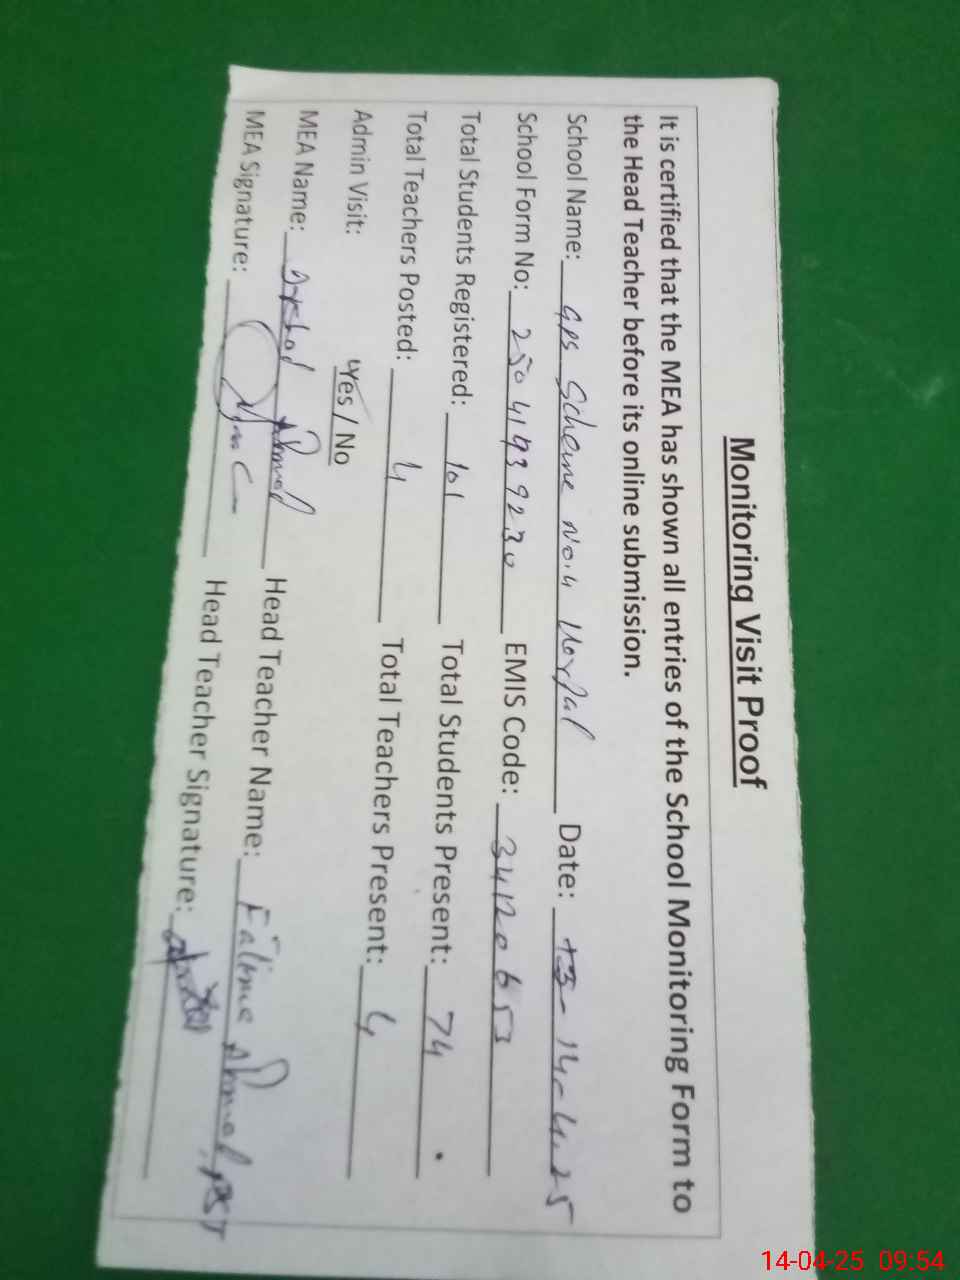 Monitoring Visit Proof
It is certified that the MEA has shown all entries of the School Monitoring Form to
the Head Teacher before its online submission.
School Name: GPS Scheme No.4 Date: 14-4-25
School Form No: 25041939230 EMIS Code: 34120653
Total Students Registered: 101 Total Students Present: 74
Total Teachers Posted: 4 Total Teachers Present: 4
Admin Visit: Yes / No
MEA Name: Arshad Ahmad Head Teacher Name: Fatima Ahmad, PST
MEA Signature: Head Teacher Signature:
14-04-25 09:54